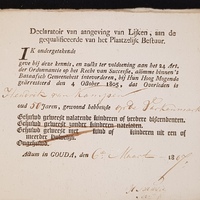 Declaratoir van aangeving van Lijken, aan de
gequalificeerde van het Plaatzelijk Bestuur.
IK ondergetekende
geve bij deze kennis, en zulks ter voldoening aan het 24 Art.
der Ordonnantie op het Recht van Successie, alomme binnen't
Bataafsch Gemeenebest intevorderen, bij Hun Hoog Mogende
gedecresteerd den 4 October 1805, dat Overleden is
oud 56 Jaren, gewoond hebbende op de
Gehuwd geweest nalatende kinderen of verdere bijzonderheden.
Gehuwd geweest zonder kinderen natelaten.
Gehuwd geweest met kind of kinderen uit een of
meerder huwelijken.
Ongehuwd.
Actum in GOUDA, den 6e Maart 1807.